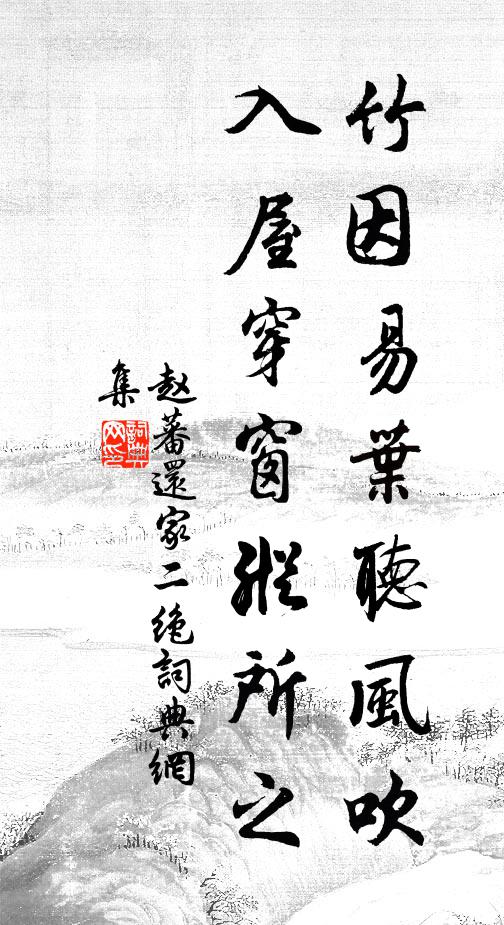 竹因易葉聽風吹
入屋穿窗縱所之
赵蕃還家二絶詞典網
集